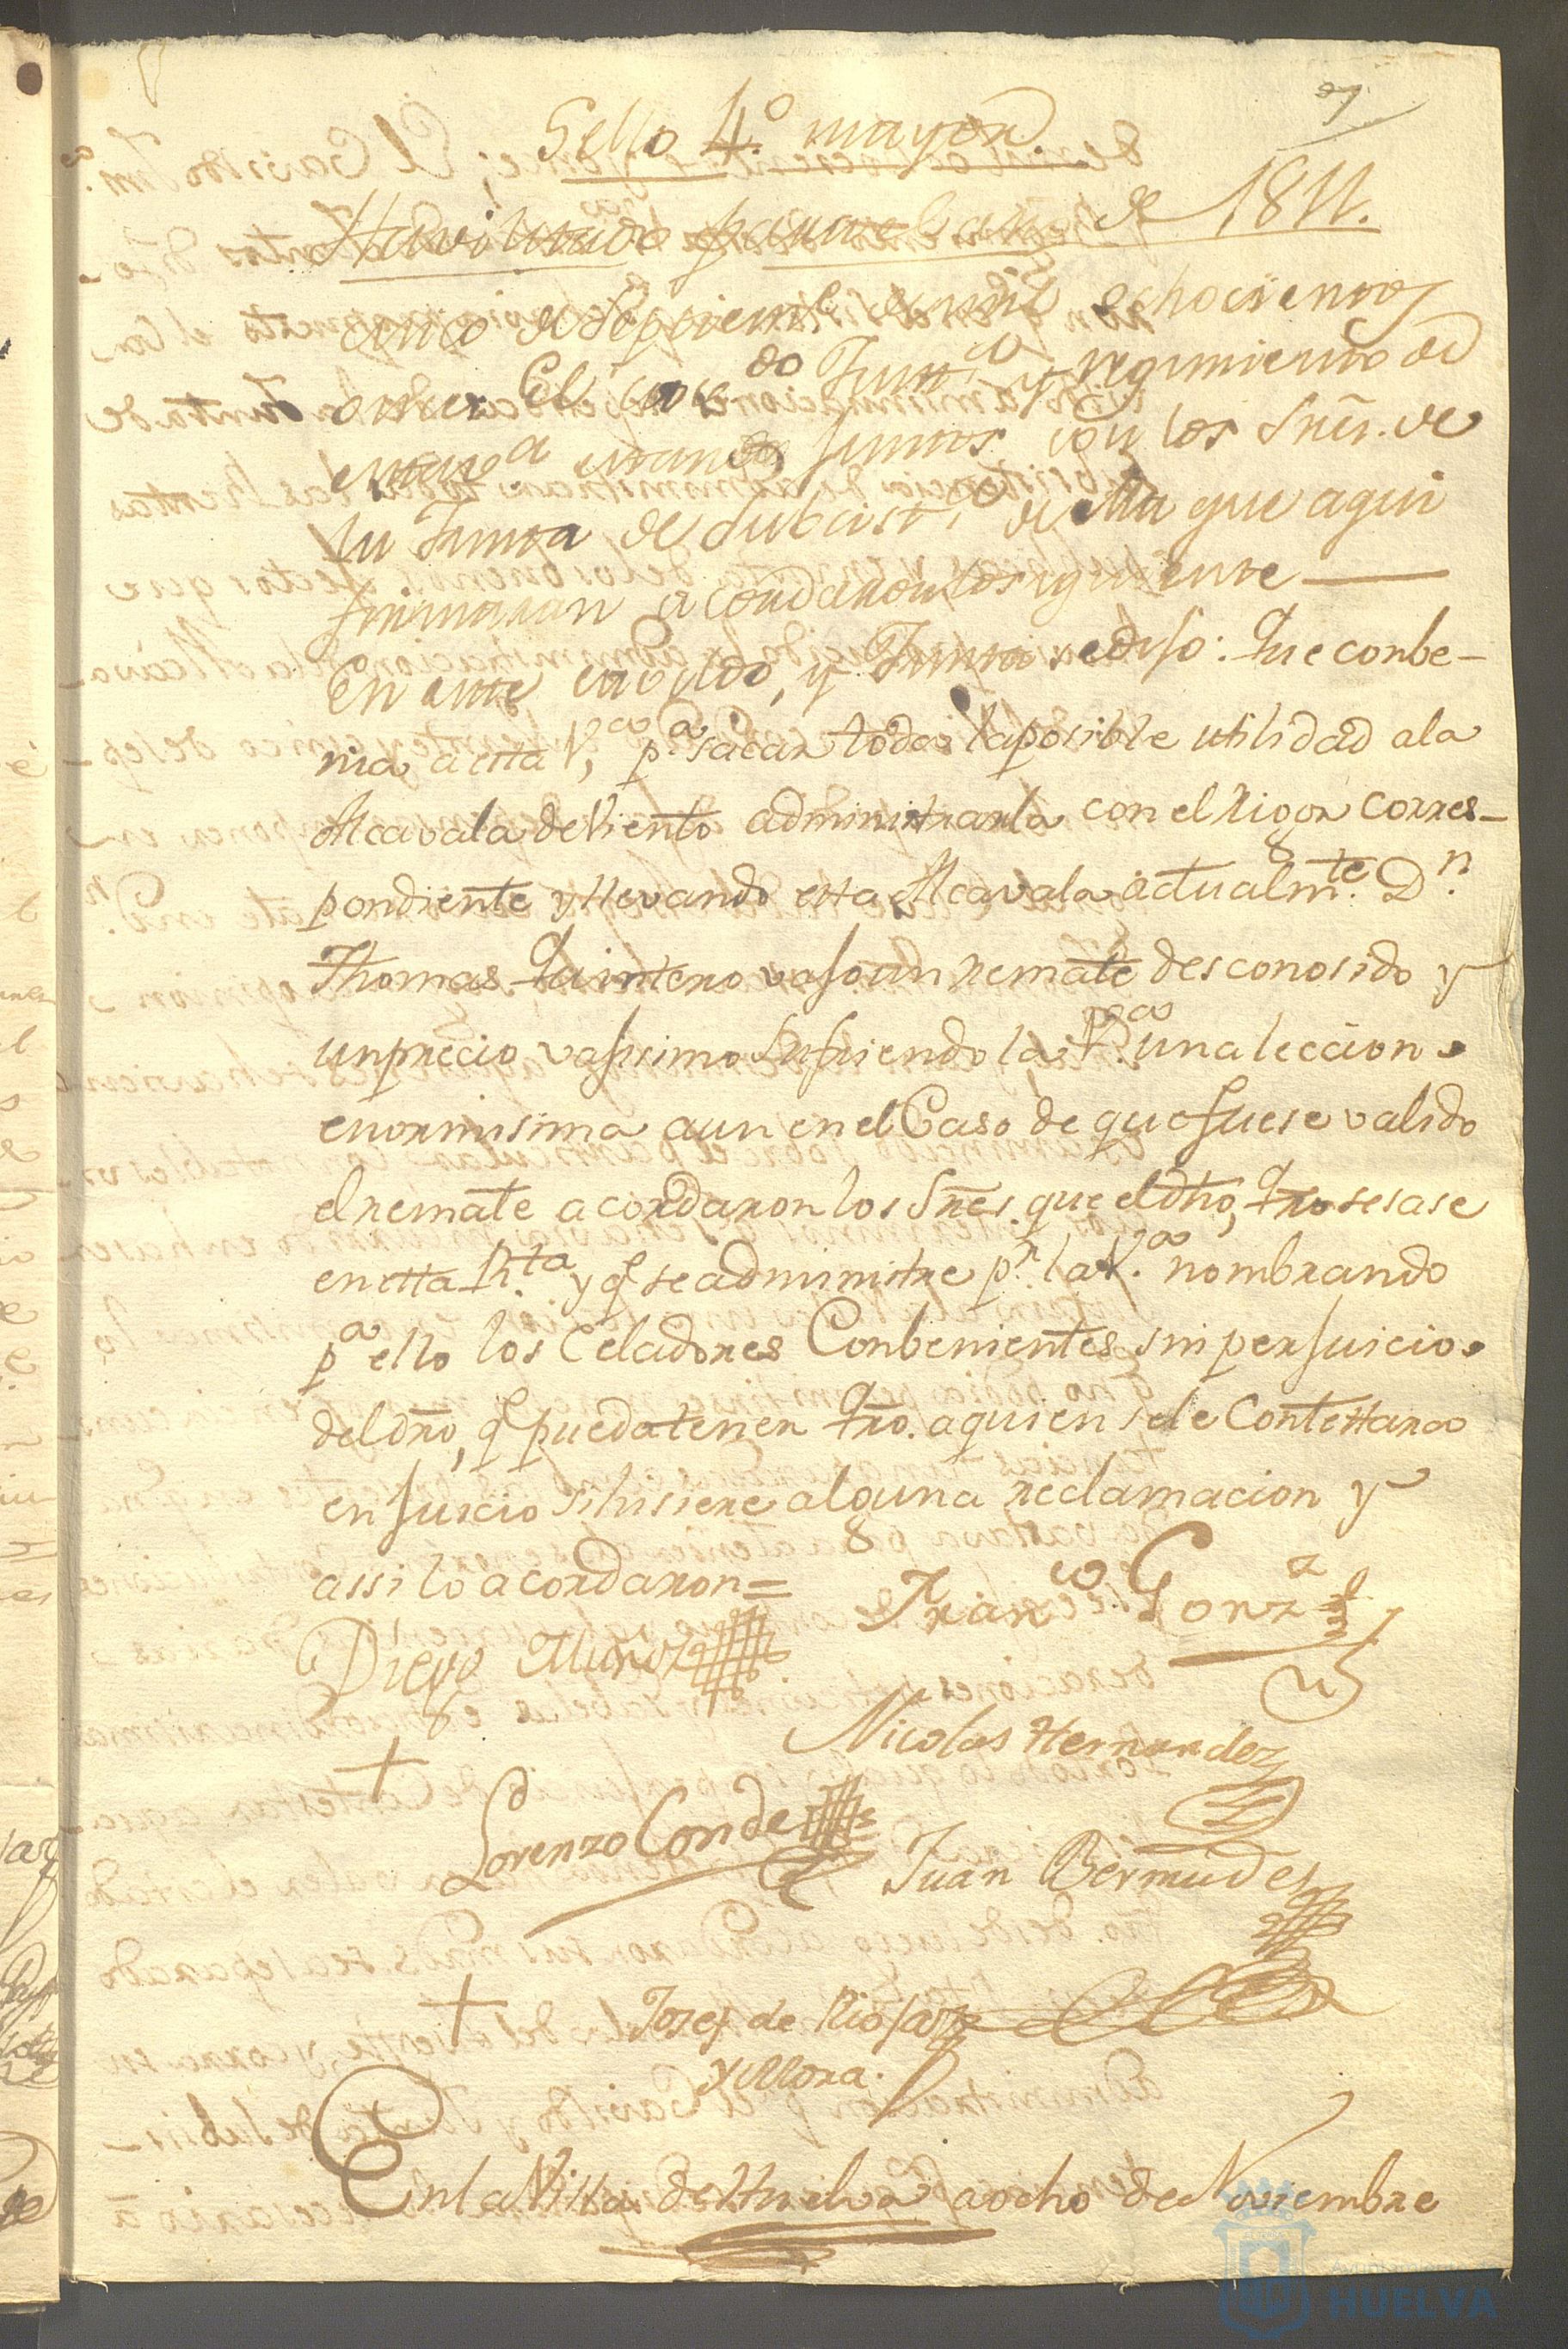 Sello 4.º mayor.
Havilitado para el año de 1811.
cinco de Septiemb.e de mil ochocientos
once El cav.do Just.ia y regimiento de
esta v.a estando juntos con los Sres. de
su Junta de Subsist.a de ella que aqui
firmaran acordaron lo siguiente
En este cavildo, y Junta se dijo: Que conbe-
nia a esta V.a, p.a sacar toda la posible utilidad a la
Alcavala de Viento administrarla con el Rigor corres-
pondiente y llevando esta Alcavala actualm.te D.n
Thomas Quintero vajo un remate desconosido y
un precio vajisimo sufriendo la V.a una lecion
enormisima aun en el Caso de que fuese valido
el remate acordaron los Sres. que el dho, Qro sesase
en esta R.ta y q.e se administre p.r la V.a nombrando
p.a ello los Celadores Conbenientes sin perjuicio
del dro, q.e pueda tener Qro. a quien se le Contestara
en juicio si hisiere alguna reclamacion y
assi lo acordaron=
Fran.co Gonz.z
Diego Muñoz
Nicolas Hernandez
Lorenzo Conde
Juan Bermudes
Josef de Rioja
y Mora.
En la Villa de Huelva a ocho de Noviembre
HUELVA